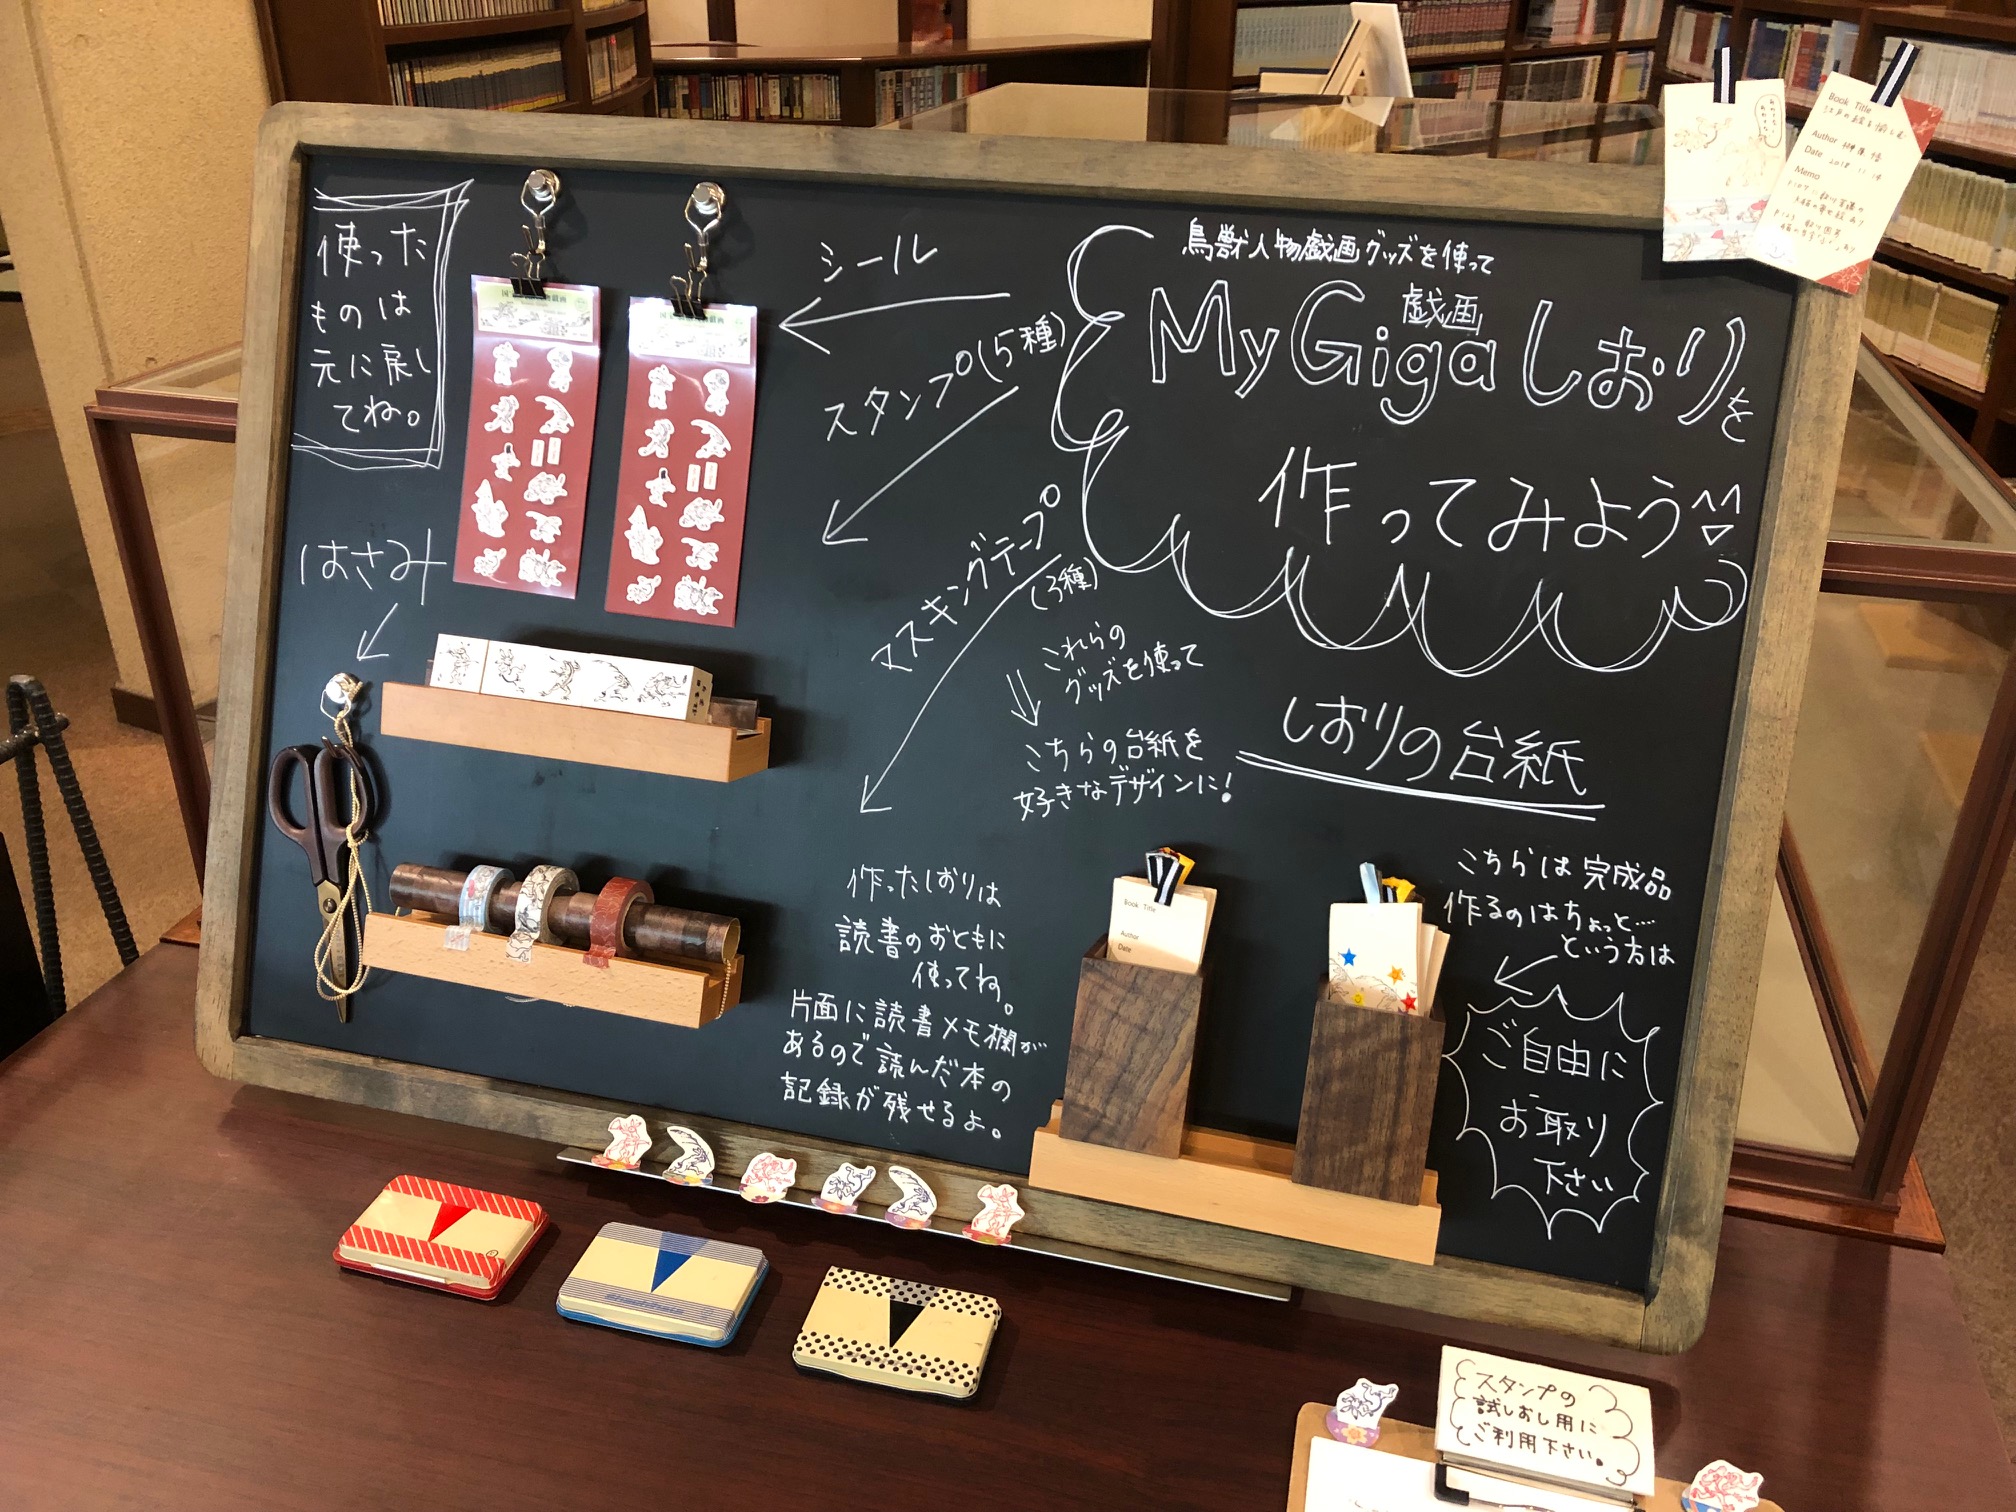 使った
ものは
元に戻し
てね。
はさみ
シール
スタンプ(5種)
マスキングテープ
(3種)
鳥獣人物戯画グッズを使って
戯画
My Giga しおりを
作ってみよう
これらの
グッズを使って
こちらの台紙を
好きなデザインに!
しおりの台紙
作ったしおりは
読書のおともに
使ってね。
片面に読書メモ欄が
あるので読んだ本の
記録が残せるよ。
こちらは完成品
作るのはちょっと…
という方は
ご自由に
お取り
下さい
Book Title
Author
Date
Book Title
Author
Date 2018 11 14
Memo
スタンプの
試しおし用に
ご利用下さい。